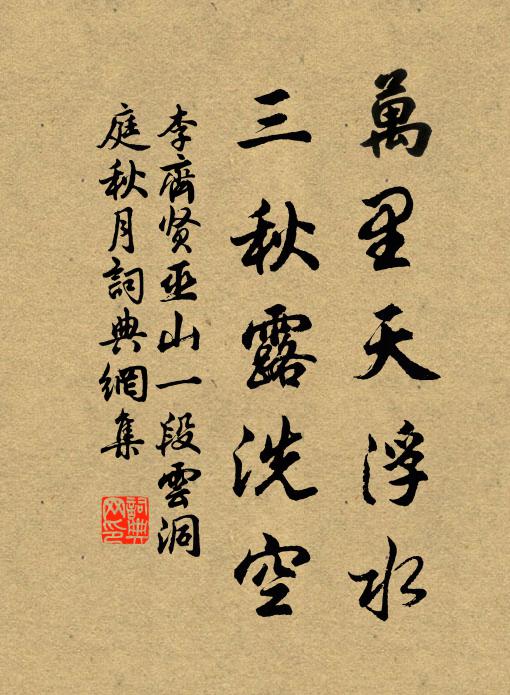 萬里天浮水
三秋露洗空
李齊贤巫山一段雲洞
庭秋月詞典網集
詞典
网印